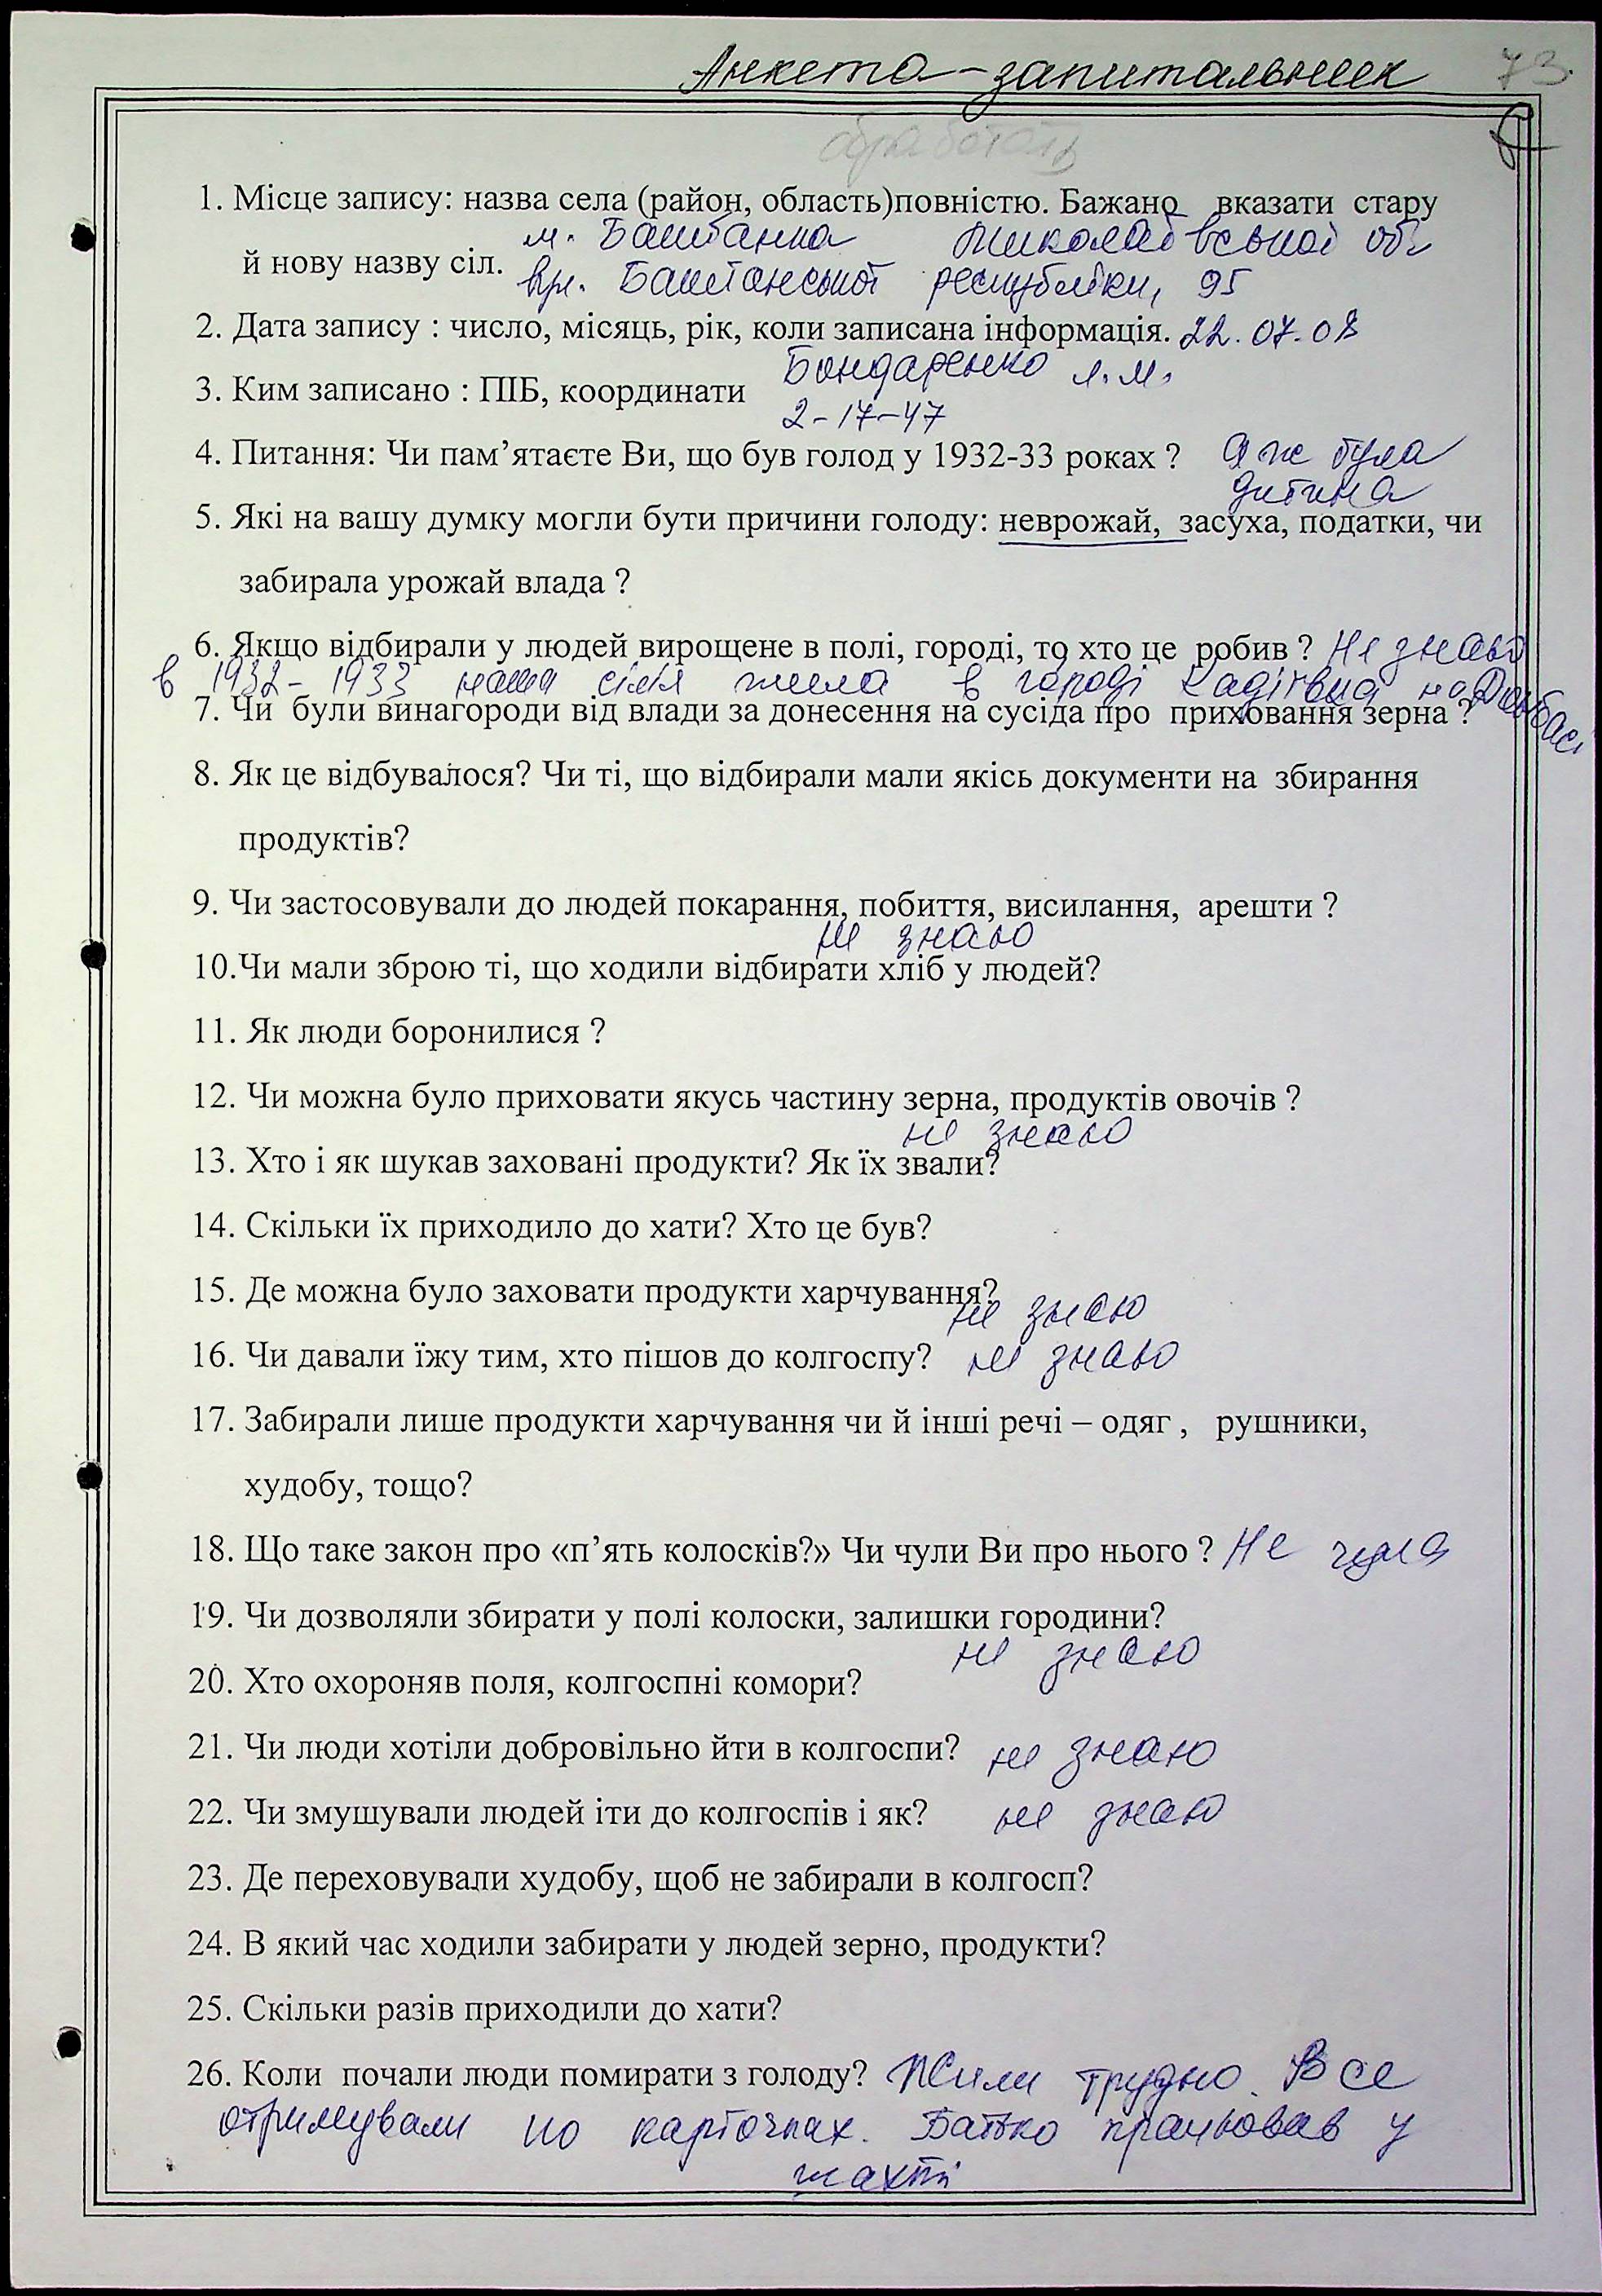 Анкета-запитальник 73.
обработать
1. Місце запису: назва села (район, область)повністю. Бажано вказати стару
м. Баштанка Миколаївської обл
й нову назву сіл.
вул. Баштанської республіки, 95
2. Дата запису : число, місяць, рік, коли записана інформація. 22.07.08
Бондаренко Л.М.
3. Ким записано : ПІБ, координати
2-17-47
4. Питання: Чи пам’ятаєте Ви, що був голод у 1932-33 роках ? Я ж була
дитина
5. Які на вашу думку могли бути причини голоду: неврожай, засуха, податки, чи
забирала урожай влада ?
6. Якщо відбирали у людей вирощене в полі, городі, то хто це робив ? Не знаю
в 1932-1933 наша сім'я жила в городі Кадіївка на Донбасі
7. Чи були винагороди від влади за донесення на сусіда про приховання зерна ?
8. Як це відбувалося? Чи ті, що відбирали мали якісь документи на збирання
продуктів?
9. Чи застосовували до людей покарання, побиття, висилання, арешти ?
не знаю
10.Чи мали зброю ті, що ходили відбирати хліб у людей?
11. Як люди боронилися ?
12. Чи можна було приховати якусь частину зерна, продуктів овочів ?
не знаю
13. Хто і як шукав заховані продукти? Як їх звали?
14. Скільки їх приходило до хати? Хто це був?
15. Де можна було заховати продукти харчування?
не знаю
16. Чи давали їжу тим, хто пішов до колгоспу? не знаю
17. Забирали лише продукти харчування чи й інші речі – одяг , рушники,
худобу, тощо?
18. Що таке закон про «п’ять колосків?» Чи чули Ви про нього ? Не чула
19. Чи дозволяли збирати у полі колоски, залишки городини?
не знаю
20. Хто охороняв поля, колгоспні комори?
21. Чи люди хотіли добровільно йти в колгоспи? не знаю
22. Чи змушували людей іти до колгоспів і як? не знаю
23. Де переховували худобу, щоб не забирали в колгосп?
24. В який час ходили забирати у людей зерно, продукти?
25. Скільки разів приходили до хати?
26. Коли почали люди помирати з голоду? Жили трудно. Все
отримували по карточках. Батько працював у
шахті